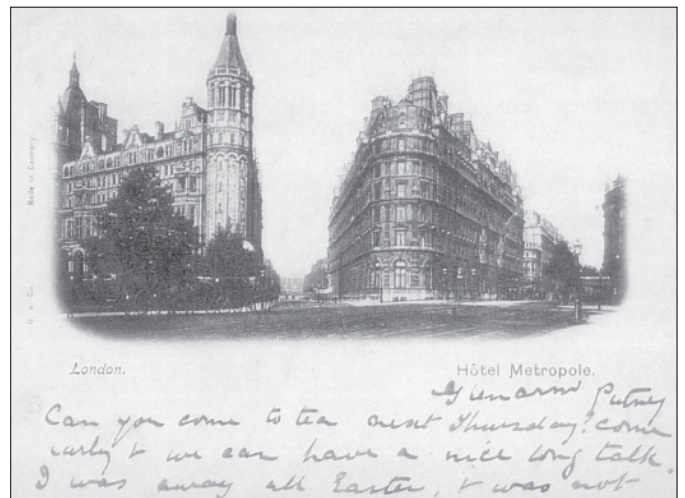 Made in Germany.
London.
Hôtel Metropole.
Glenarm Putney
Can you come to tea next Thursday? come
early & we can have a nice long talk.
I was away all Easter, & was not